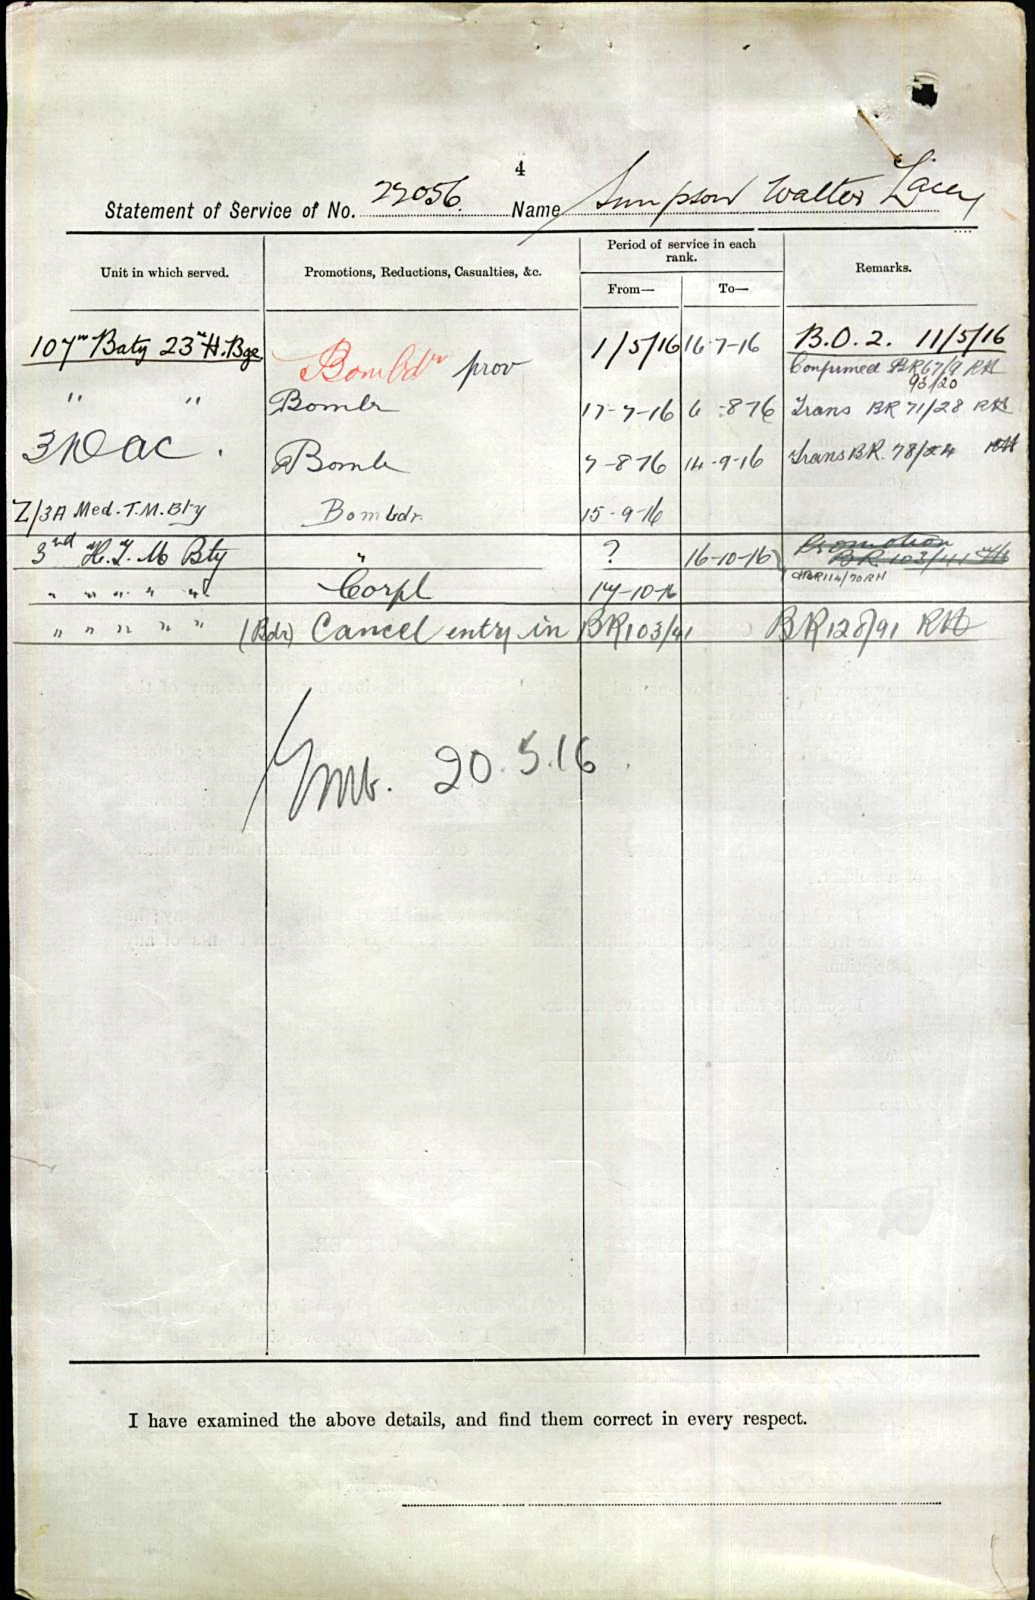 4
Statement of Service of No. 22056. Name Simpson Walter Lacey
Unit in which served. Promotions, Reductions, Casualties, &c. Period of service in each rank. Remarks.
From— To—
107th Baty 23rd H. Bge Bombdr prov 1/5/16 16-7-16 B.O. 2. 11/5/16
Confirmed BR67/9 RH
93/20
" " Bombr 17-7-16 6-8-16 Trans BR 71/28 RH
3 DAC. Bombr 7-8-16 14-9-16 Trans BR. 78/24 RH
Z/3A Med. T.M. Bty Bombdr. 15-9-16
3rd H.T.M Bty " ? 16-10-16 Promotion
BR 103/41
BR114/70 RH
" " " " " Corpl 17-10-16
" " " " " (Bdr) Cancel entry in BR103/41 BR128/91 RH
Emb. 20.5.16.
I have examined the above details, and find them correct in every respect.